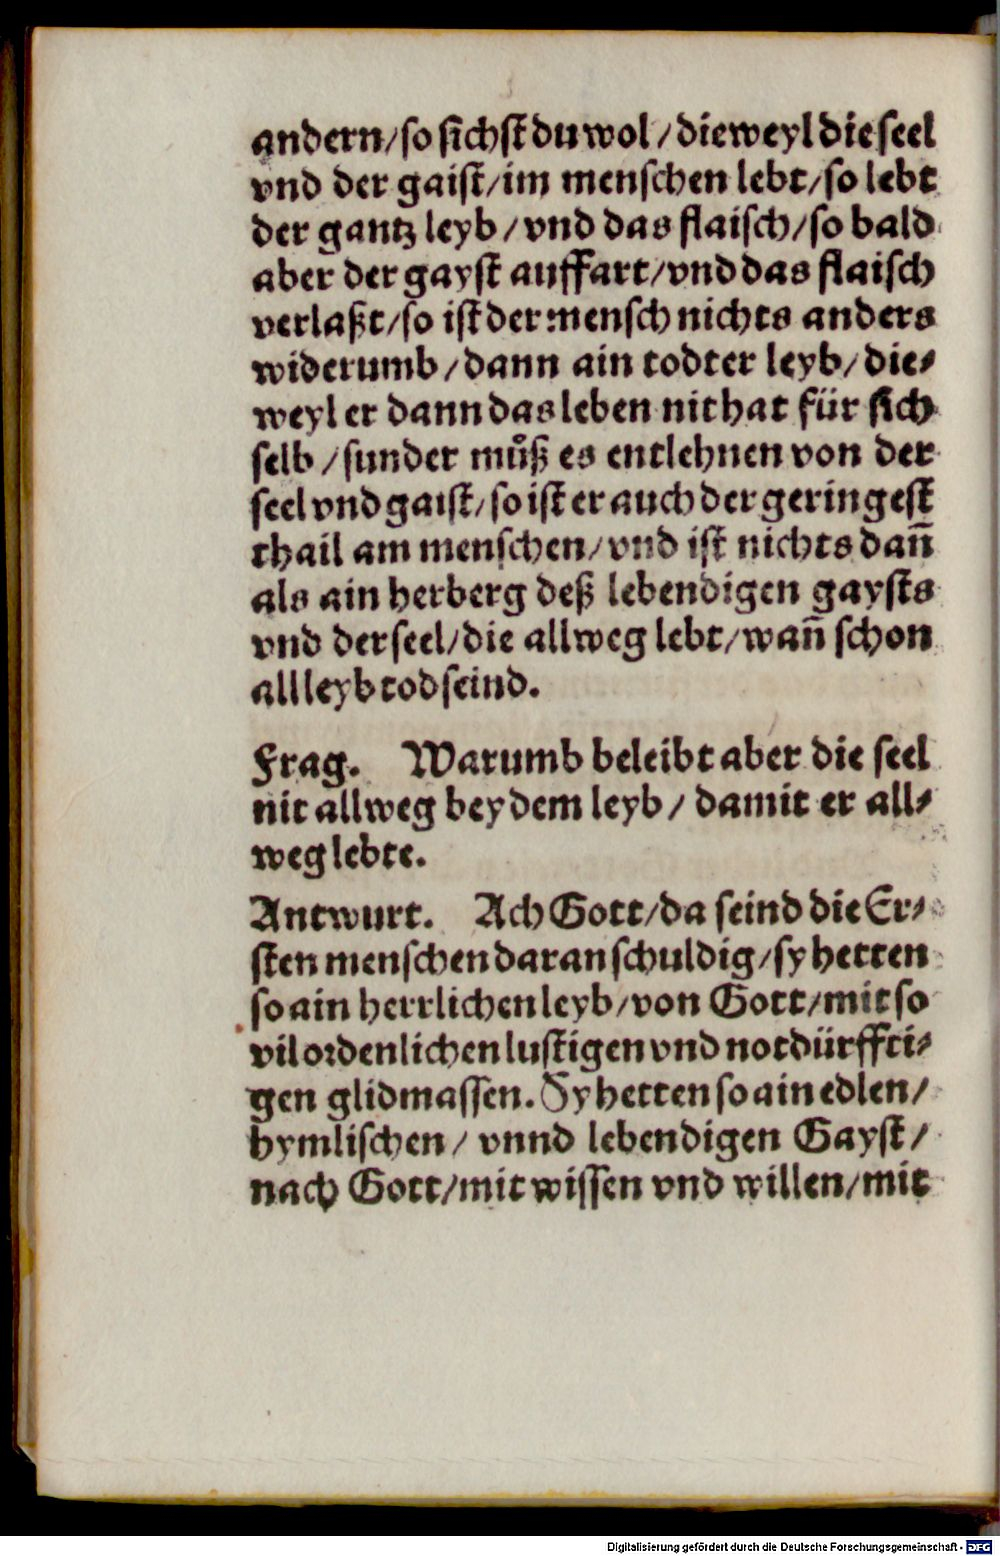 andern/so sichst du wol/dieweyl die seel
vnd der gaist/im menschen lebt/so lebt
der gantz leyb/vnd das flaisch/so bald
aber der gayst auffart/vnd das flaisch
verlaßt/so ist der mensch nichts anders
widerumb/dann ain todter leyb/die⸗
weyl er dann das leben nit hat für sich
selb/sunder můß es entlehnen von der
seel vnd gaist/so ist er auch der geringest
thail am menschen/vnd ist nichts dañ
als ain herberg deß lebendigen gaysts
vnd der seel/die allweg lebt/wañ schon
all leyb tod seind.
Frag. Warumb beleibt aber die seel
nit allweg bey dem leyb/damit er all⸗
weg lebte.
Antwurt. Ach Gott/da seind die Er⸗
sten menschen daran schuldig/sy hetten
so ain herrlichen leyb/von Gott/mit so
vil ordenlichen lustigen vnd notdürffti⸗
gen glidmassen. Sy hetten so ain edlen/
hymlischen/vnnd lebendigen Gayst/
nach Gott/mit wissen vnd willen/mit
Digitalisierung gefördert durch die Deutsche Forschungsgemeinschaft - DFG